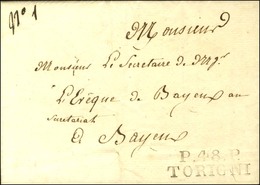 N° 1
Monsieur
Monsieur Le Secretaire de Mgr
L'Evêque de Bayeux au
Secretariat
à Bayeux
P.48.P.
TORIGNI